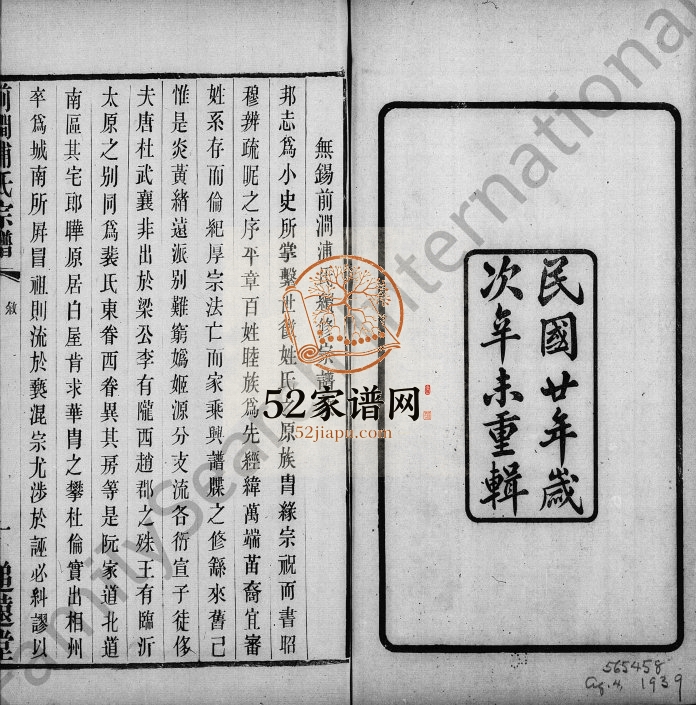 民國廿年歲
次辛未重輯
565458
Ag. 4, 1939
無錫前澗浦氏續修宗譜
邦志爲小史所掌繫世徵姓氏原族胄緣宗祝而書昭
穆辨疏昵之序平章百姓睦族爲先經緯萬端苗裔宜審
姓系存而倫紀厚宗法亡而家乘興譜牒之修繇來舊已
惟是炎黃緒遠派別難窮嬀姬源分支流各衍宣子徒侈
夫唐杜武襄非出於梁公李有隴西趙郡之殊王有臨沂
太原之別同爲裴氏東眷西眷異其房等是阮家道北道
南區其宅郎曄原居白屋肯求華胄之攀杜倫實出相州
卒爲城南所屏冒祖則流於褻混宗尤涉於誣必糾謬以
前澗浦氏宗譜
敘
一
追遠堂
52家谱网
52jiapu.com
FamilySearch International